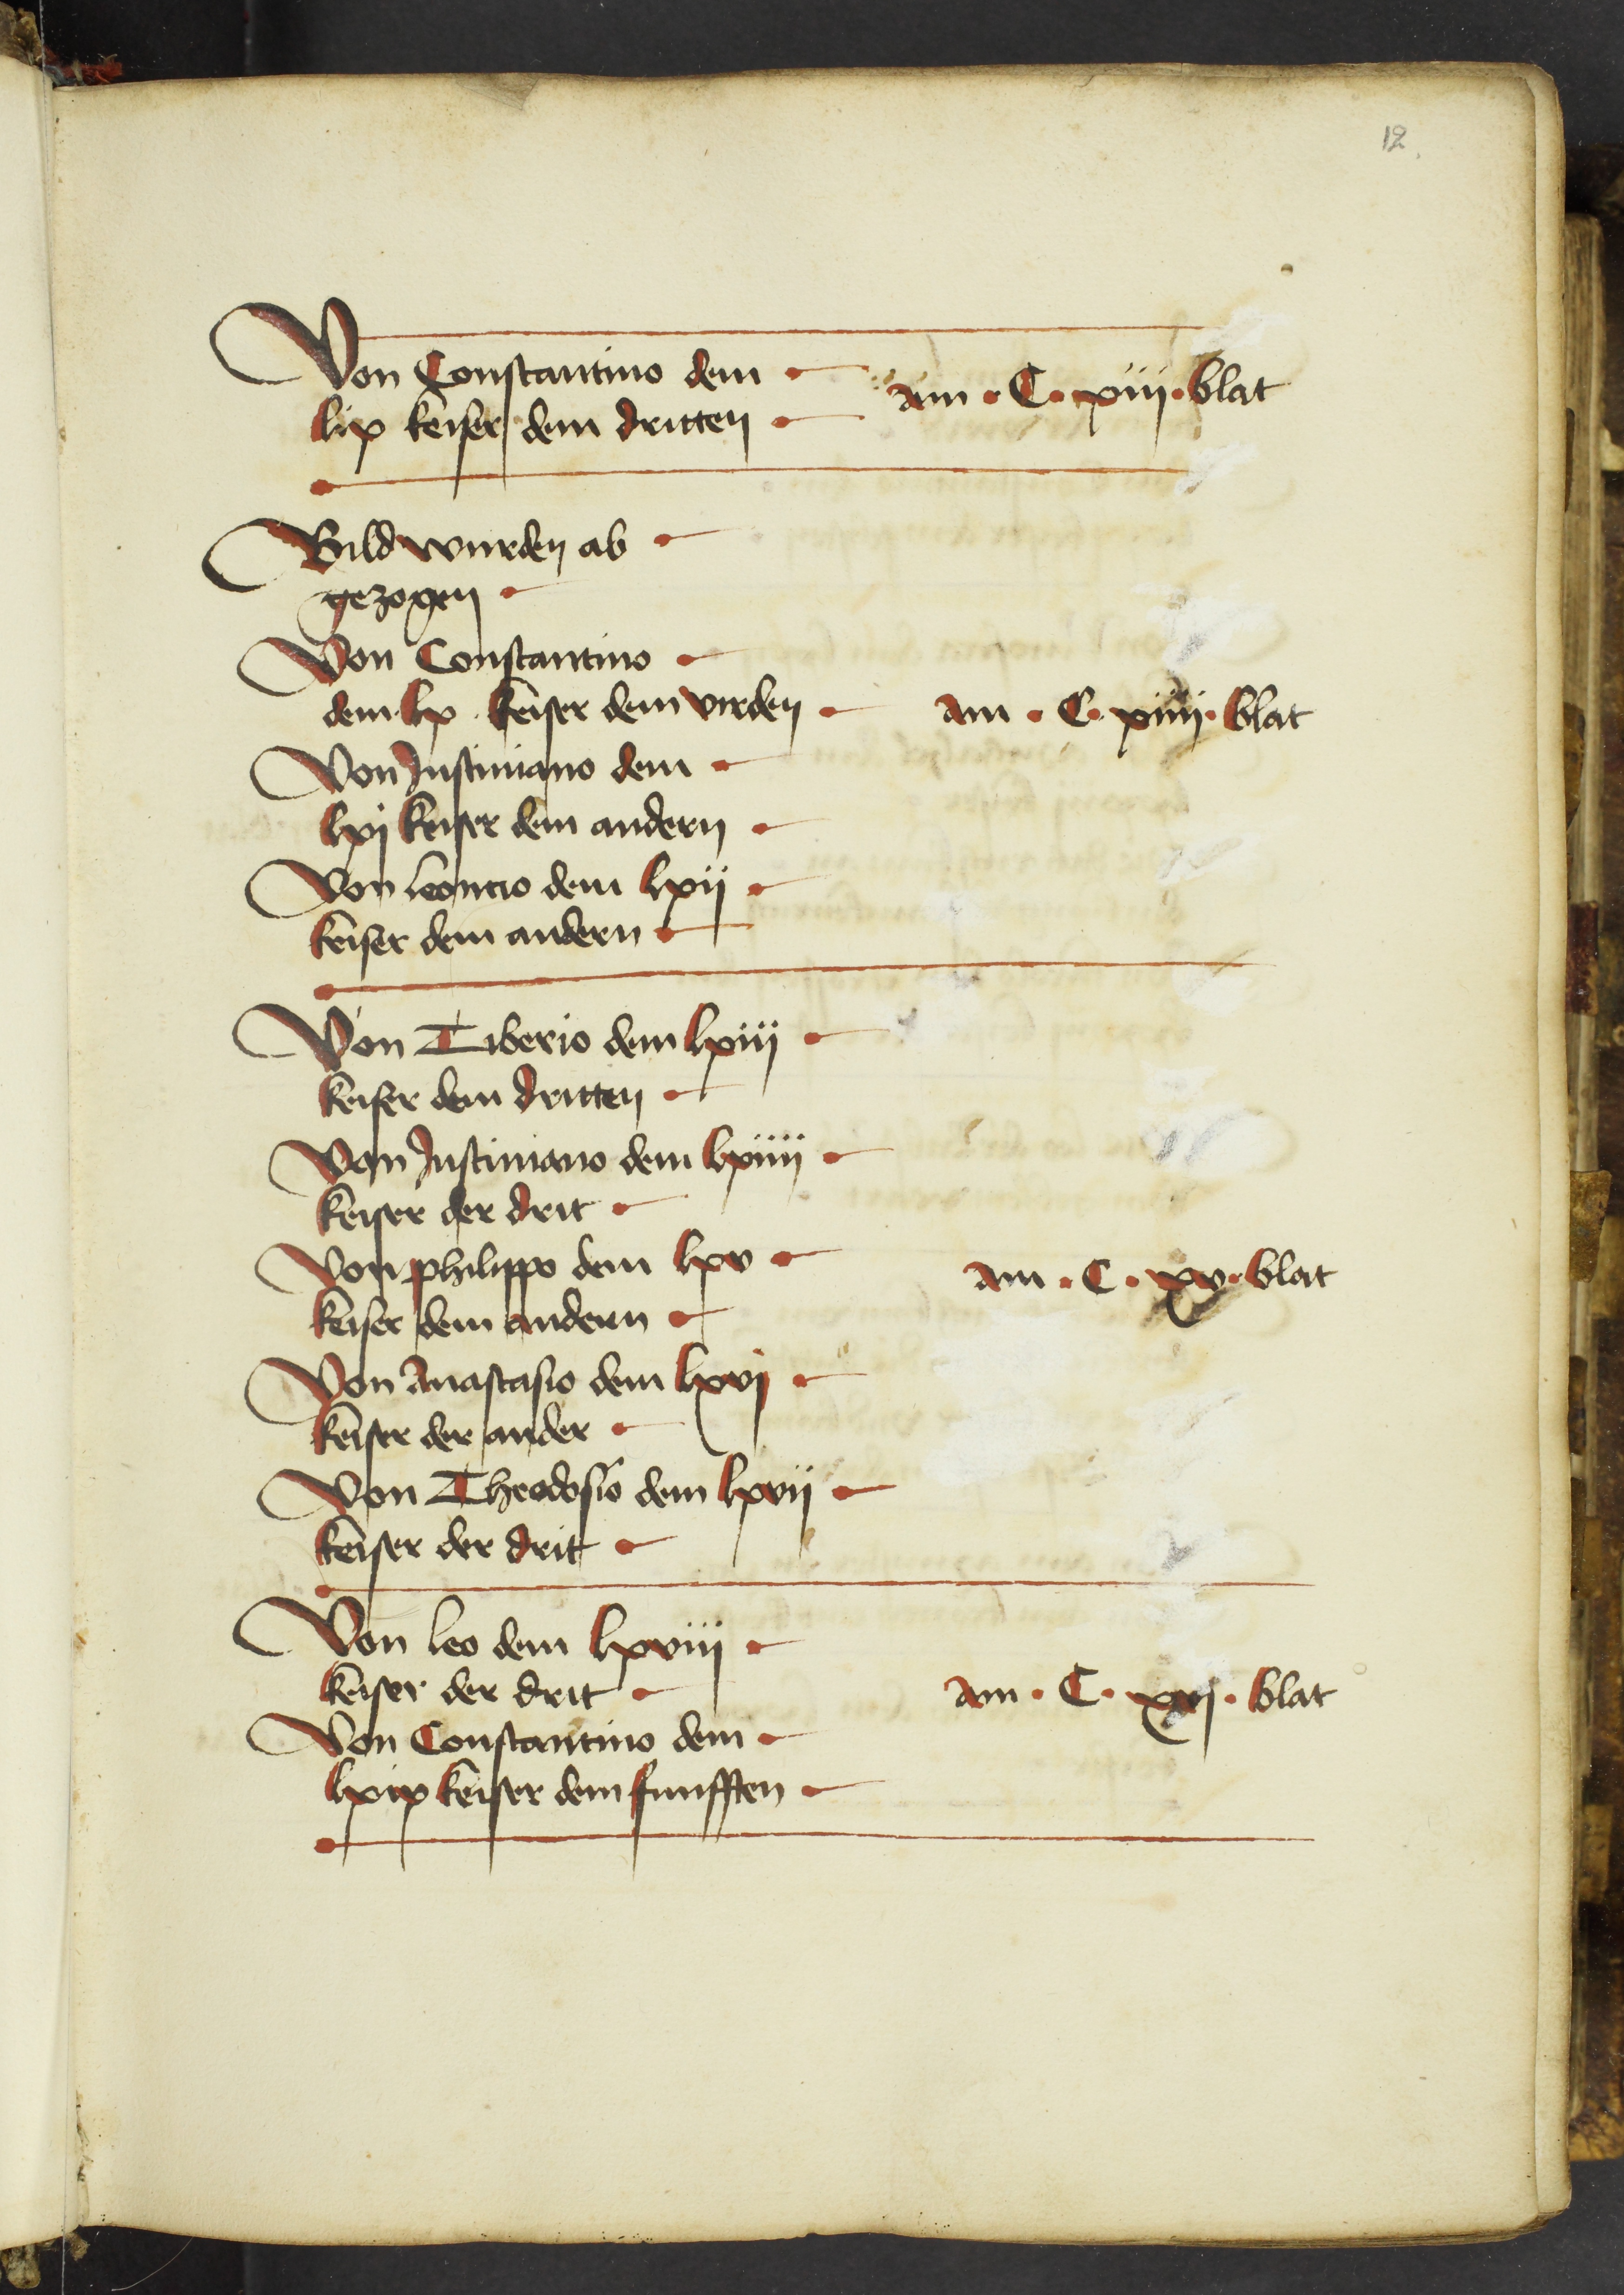 12
Von Constantino dem
lix keiser dem dritten
am · C · xiii · blat
Bild wurden ab
gezogen
Von Constantino
dem lx keiser dem virden
am · C · xiiii · blat
Von Justiniano dem
lxj keiser dem andern
Von leoncio dem lxii
keiser dem andern
Von Tiberio dem lxiii
keiser dem dritten
Von Justiniano dem lxiiii
keiser der drit
Von philippo dem lxv
am · C · xv · blat
keiser dem andern
Von Anastasio dem lxvj
keiser der ander
Von Theodosio dem lxvii
keiser der drit
Von leo dem lxviii
keiser der drit
am · C · xvj · blat
Von Constantino dem
lxix keiser dem funfften